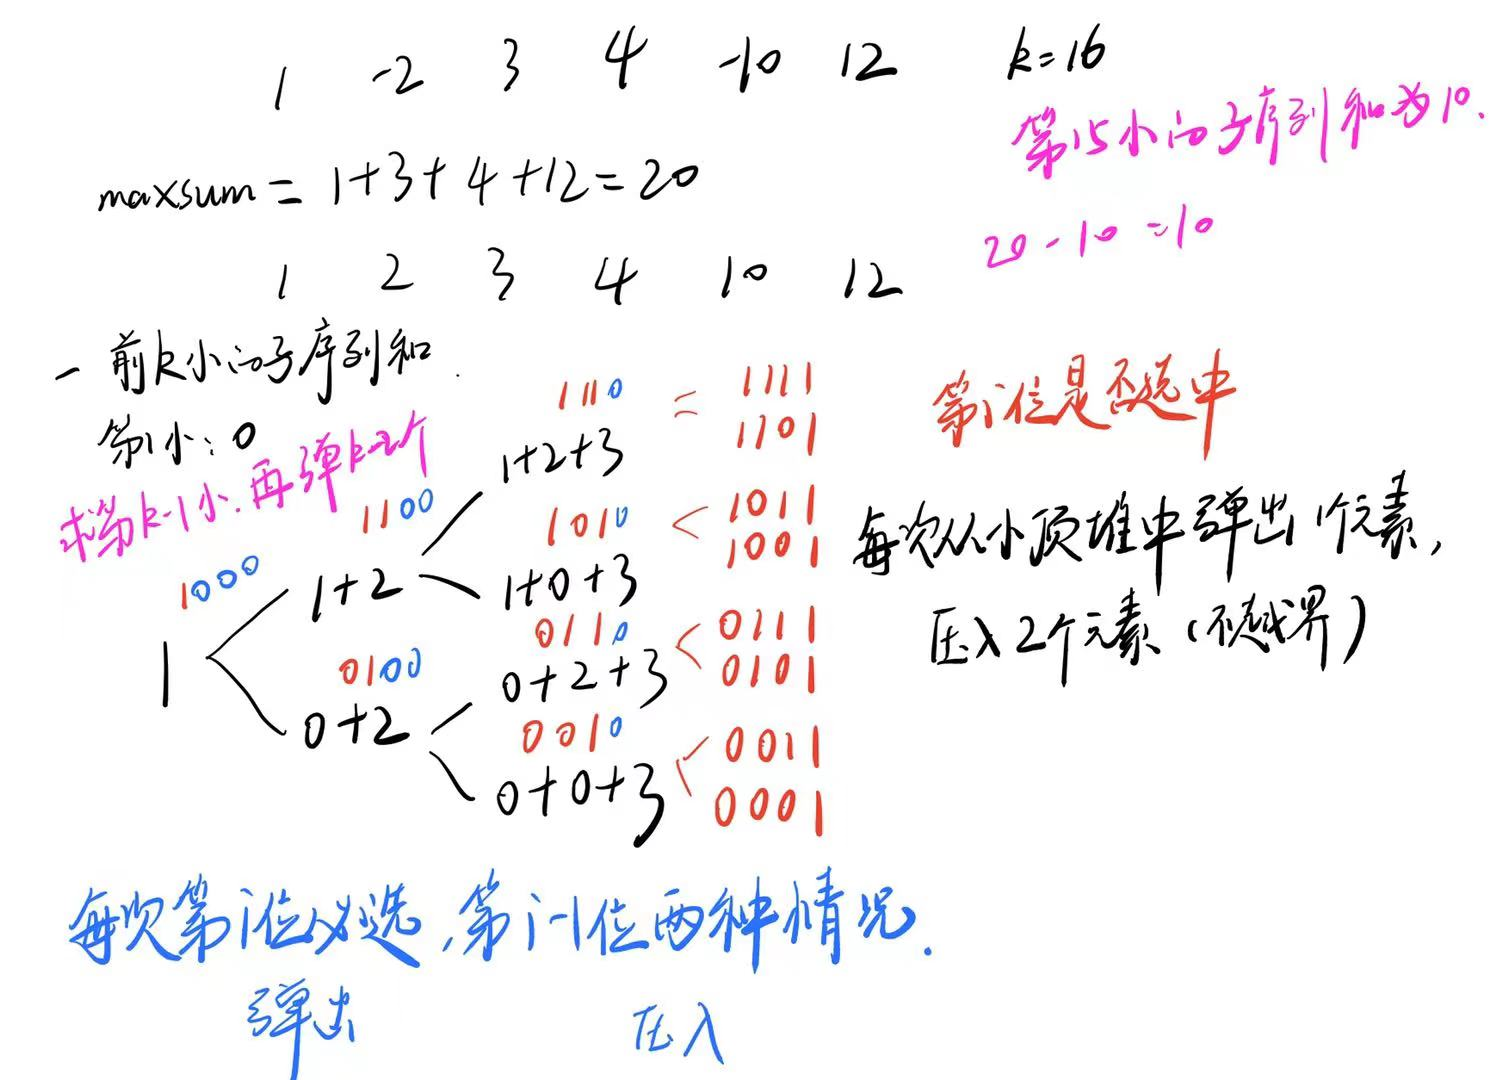 1 -2 3 4 -10 12 k=16
第15小的子序列和为10.
maxsum = 1+3+4+12=20
20-10=10
1 2 3 4 10 12
- 前k小的子序列和.
第1小: 0
求第k-1小. 再弹k-2个
第i位是否选中
1110 = 1111
1101
1+2+3
1100
1010 < 1011
1001
1+2
1+0+3
每次从小顶堆中弹出1个元素,
压入2个元素(不越界)
1000
1
0110 < 0111
0101
0+2+3
0100
0+2
0010 < 0011
0001
0+0+3
每次第i位必选,第i-1位两种情况.
弹出 压入